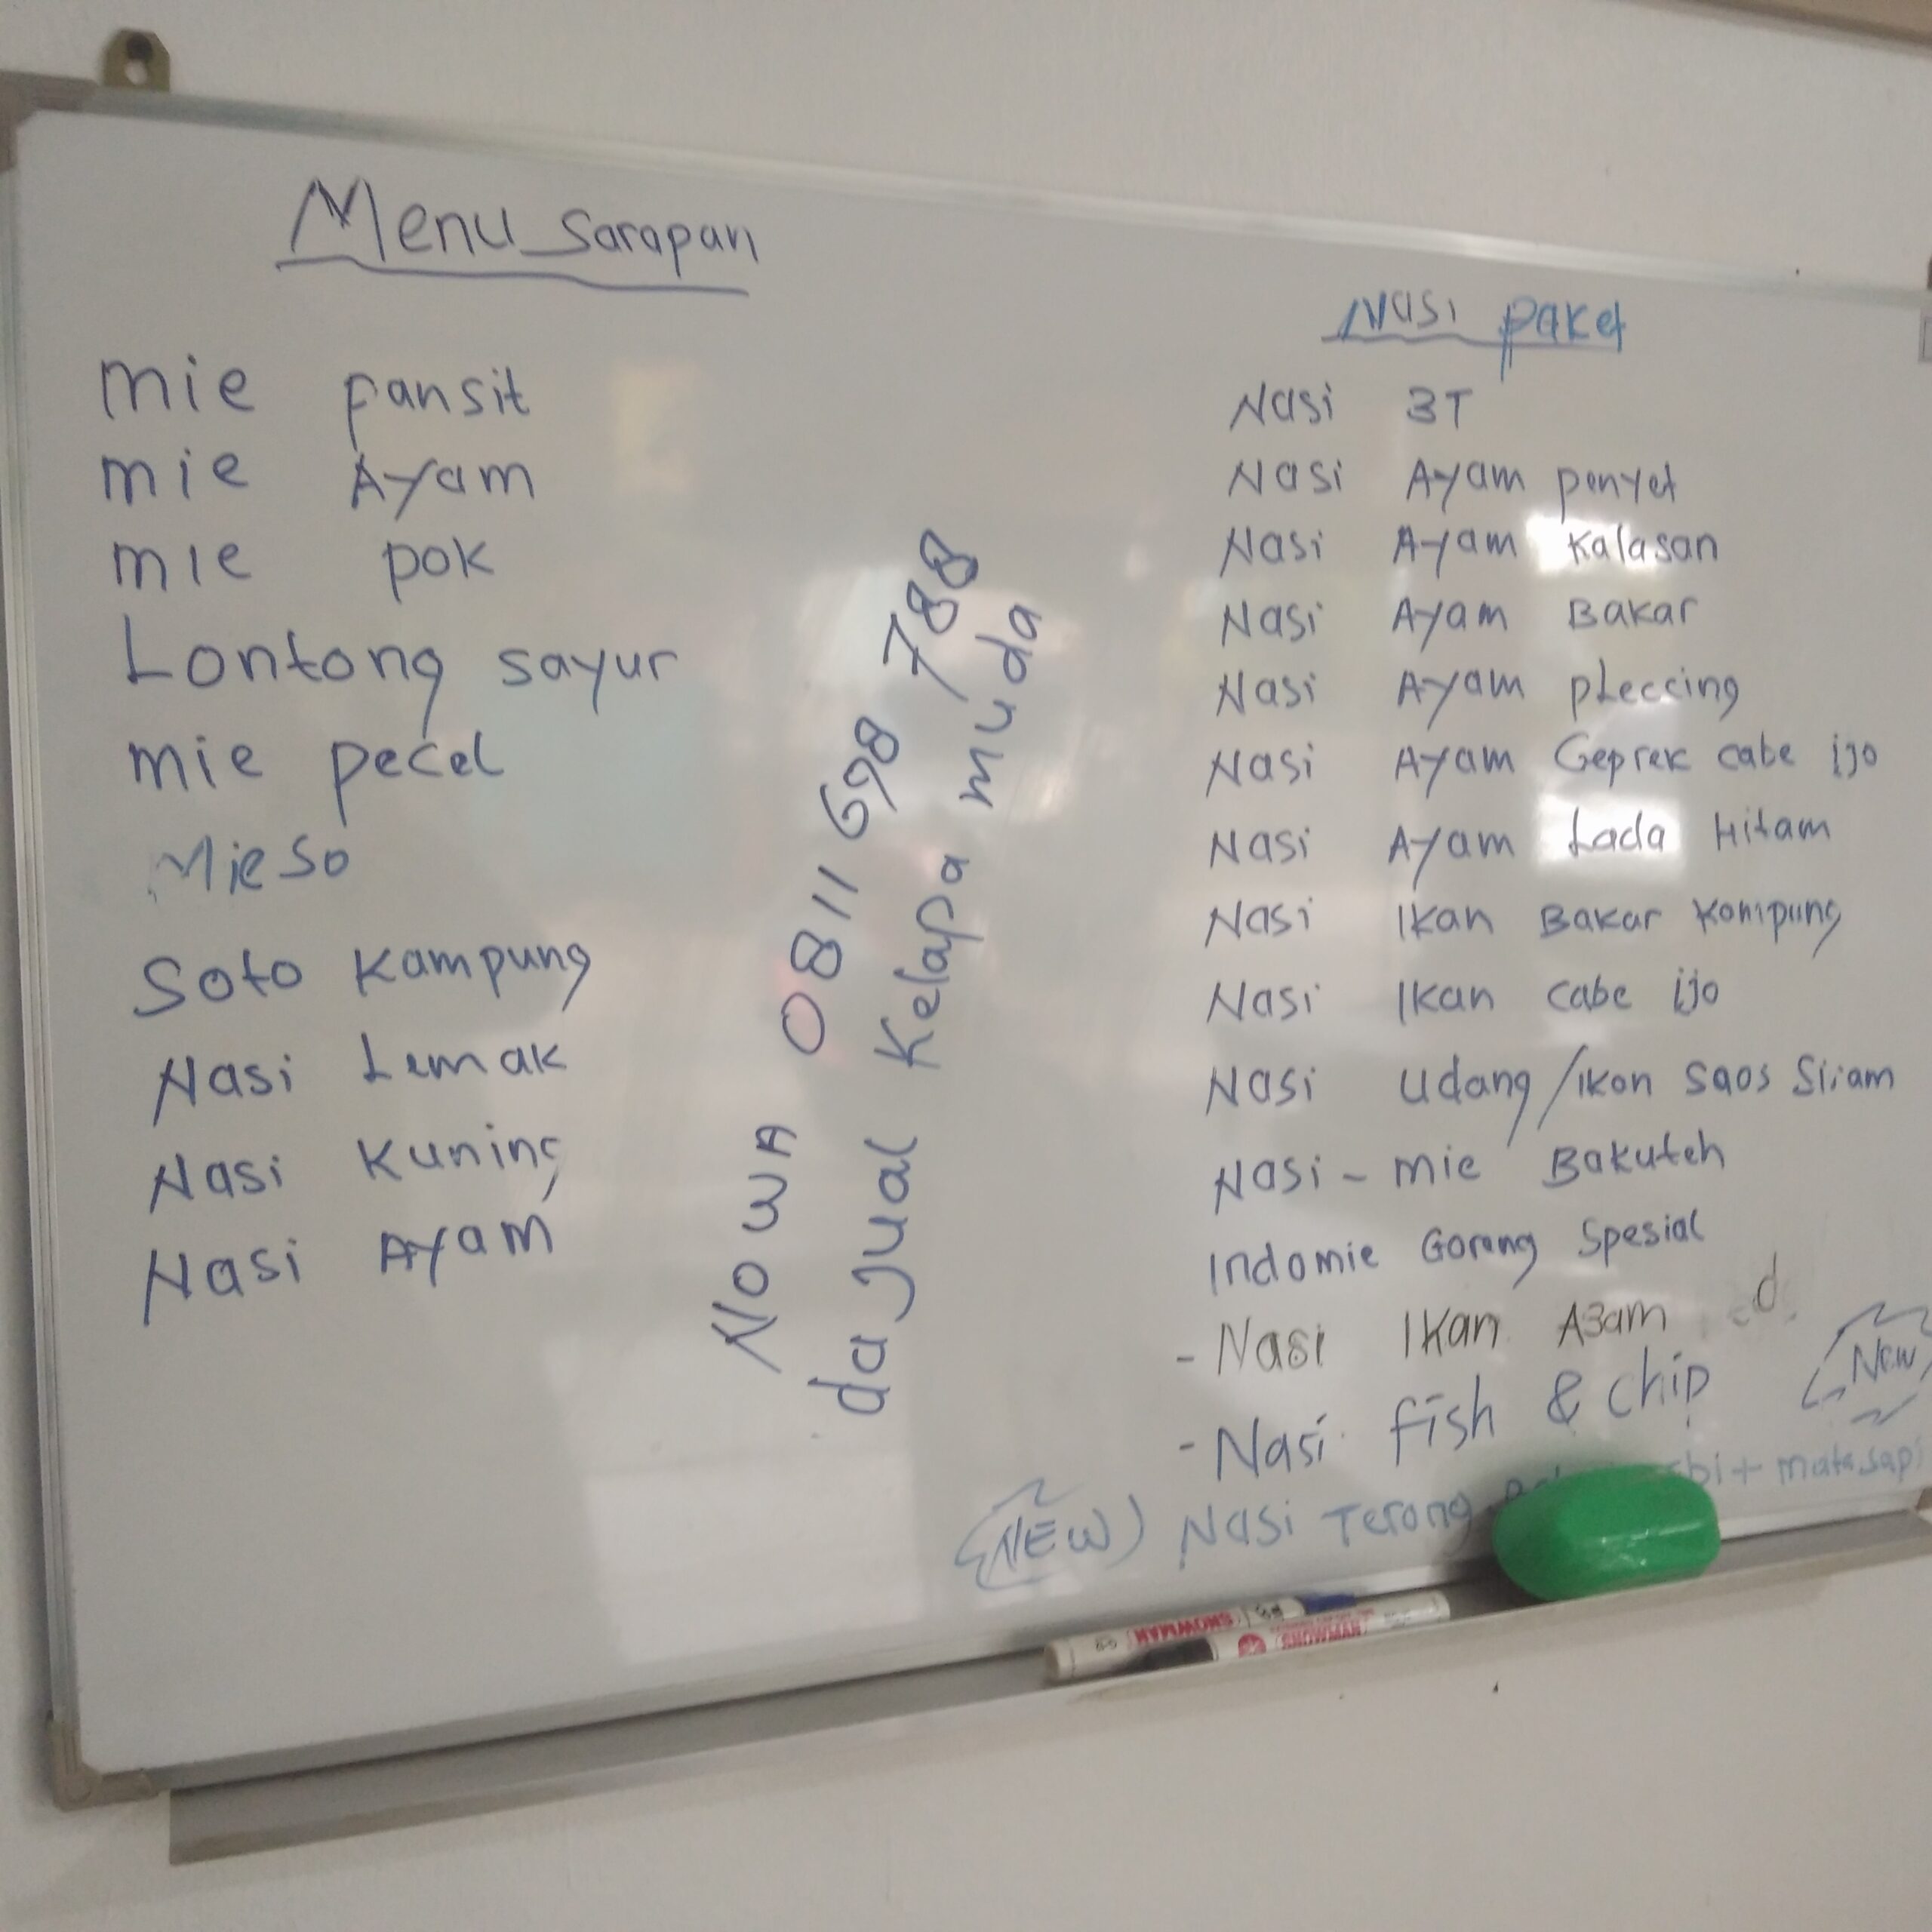 Menu Sarapan
mie pansit
mie Ayam
mie pok
Lontong sayur
mie pecel
Mie so
Soto Kampung
Nasi Lemak
Nasi Kuning
Nasi Ayam
No WA 0811 698 788
da jual Kelapa muda
Nasi paket
Nasi 3T
Nasi Ayam penyet
Nasi Ayam Kalasan
Nasi Ayam Bakar
Nasi Ayam pLeccing
Nasi Ayam Geprek cabe ijo
Nasi Ayam Lada Hitam
Nasi Ikan Bakar Kampung
Nasi Ikan cabe ijo
Nasi Udang/ikan saos Siram
Nasi - mie Bakuteh
Indomie Goreng Spesial
- Nasi Ikan A3am
- Nasi fish & chip
New
(NEW) Nasi Terong + matasapi
SNOWMAN
SNOWMAN